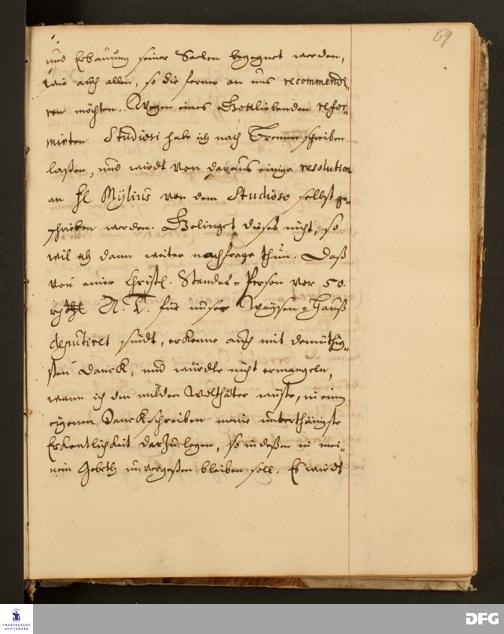 69
und Erbauung seiner Seelen begegnet werden,
wie auch allen, so die ferner an uns recommendi-
ren möchten. Wegen eines Gottliebenden refor-
mirten Studiosi habe ich nach Bremen schreiben
laßen, und wird von daraus einige resolution
an H. Mylius von dem Studioso selbst ge-
schrieben werden. Gelinget dieses nicht, so
will ich dann weiter nachfrage thun. Daß
von einer Christl. Standes-Person vor 50.
rthl. für unser Waysen-Hauß
deputiret sindt, erkenne auch mit demüthig-
sten Danck, und würdte nicht ermangeln,
wann ich den milden Wolthäter wüste, in einem
eigenen Danckschreiben meine unterthänigste
Erkentlichkeit darzulegen, so indeßen in mei-
nem Gebeth unvergeßen bleiben soll. Es wirdt
FRANCKESCHE STIFTUNGEN
DFG